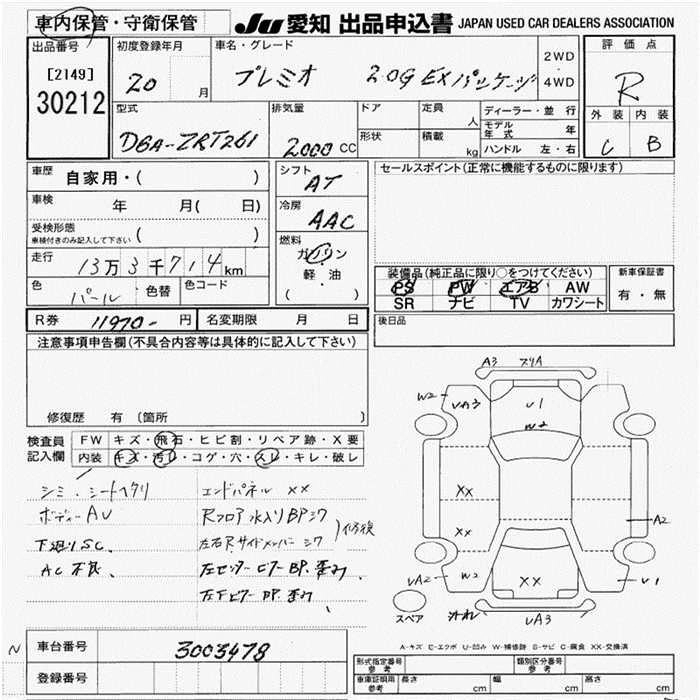 車内保管・守衛保管
JU 愛知 出品申込書 JAPAN USED CAR DEALERS ASSOCIATION
出品番号
[2149]
30212
初度登録年月
20 月
車名・グレード
プレミオ 2.0G EXパッケージ
2WD
4WD
評価点
R
外装 内装
C B
型式
DBA-ZRT261
排気量
2000 CC
ドア
形状
定員 人
積載 kg
ディーラー・並行
モデル年式 年
ハンドル 左・右
車歴 自家用・( )
車検 年 月( 日)
受検形態
車検付きのみ記入して下さい ( )
走行 13万3千714km
色 パール 色替 色コード
シフト
AT
冷房
AAC
燃料
ガソリン
・
軽・油
( )
セールスポイント(正常に機能するものに限ります)
装備品(純正品に限り○をつけてください)
PS PW エアB AW
SR ナビ TV カワシート
新車保証書
有・無
後日品
R券 11970- 円 名変期限 月 日
注意事項申告欄(不具合内容等は具体的に記入して下さい)
修復歴 有 〔箇所 〕
検査員
記入欄
FW キズ・飛石・ヒビ割・リペア跡・X要
内装 キズ・汚レ・コゲ・穴・スレ・キレ・破レ
シミ・シートヘタリ
ボディーAU
下廻りSC、
AC不良、
エンドパネル XX
Rフロア 水入りBPシワ
左右Rサイドメンバー シワ
修復
左センターピラーBP.歪み
左Fピラー BP.歪み
A3 スリA
W2 UA3 U1
W2
XX
XX
A2
UA2 W2 XX U1
スペア
UA3
A-キズ E-エクボ U-凹み W-補修跡 S-サビ C-腐食 XX-交換済
N
車台番号 3003478
登録番号
形式指定番号 参考
類別区分番号 参考
車庫証明用 参考
長さ cm
幅 cm
高さ cm